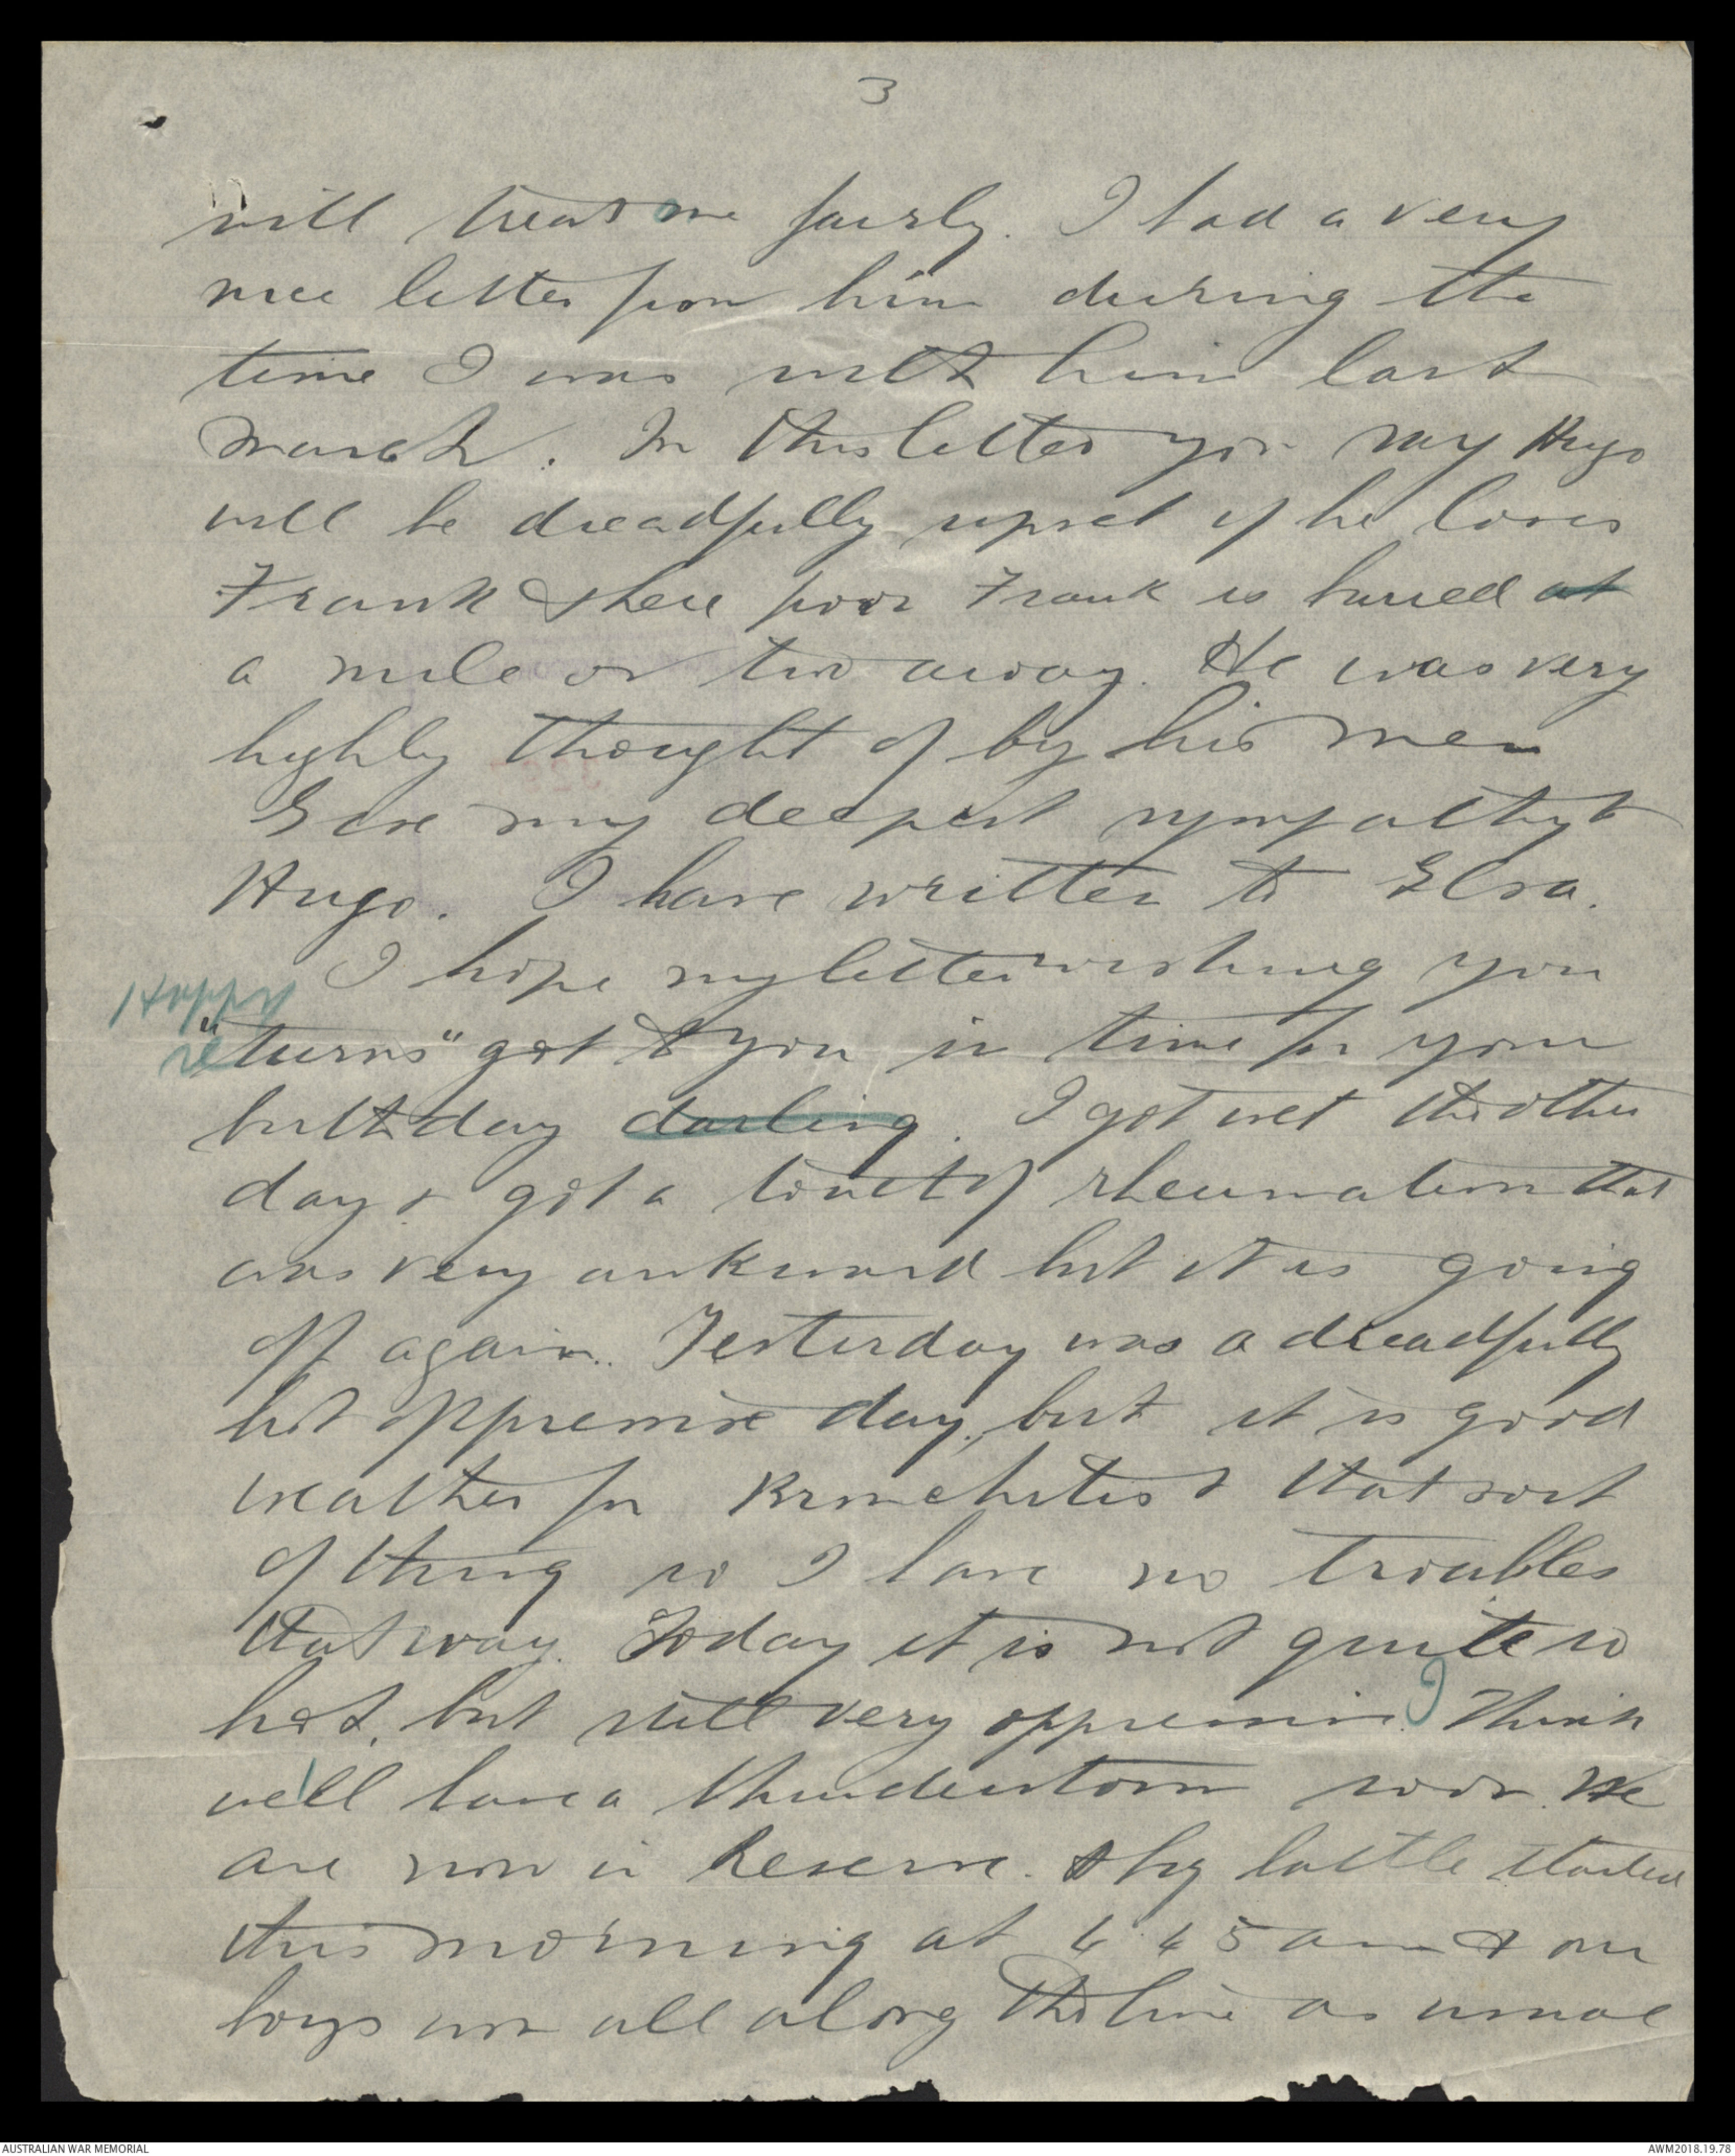 3
will treat me fairly. I had a very
nice letter from him during the
time I was with him last
March. In this letter you say Hugo
will be dreadfully upset if he loses
Frank & here poor Frank is buried at
a mile or two away. He was very
highly thought of by his men
Give my deepest sympathy to
Hugo. I have written to Elsa.
I hope my letter wishing you
Happy
"returns" got to you in time for your
birthday darling. I got wet the other
day & got a touch of rheumatism that
was very awkward but it is going
off again. Yesterday was a dreadfully
hot oppressive day, but it is good
weather for Bronchitis & that sort
of thing so I have no troubles
that way. Today it is not quite so
hot, but still very oppressive. I think
we'll have a thunderstorm soon. We
are now in Reserve. A big battle started
this morning at 4.45 am & our
boys won all along the line as usual
AUSTRALIAN WAR MEMORIAL
AWM2018.19.78